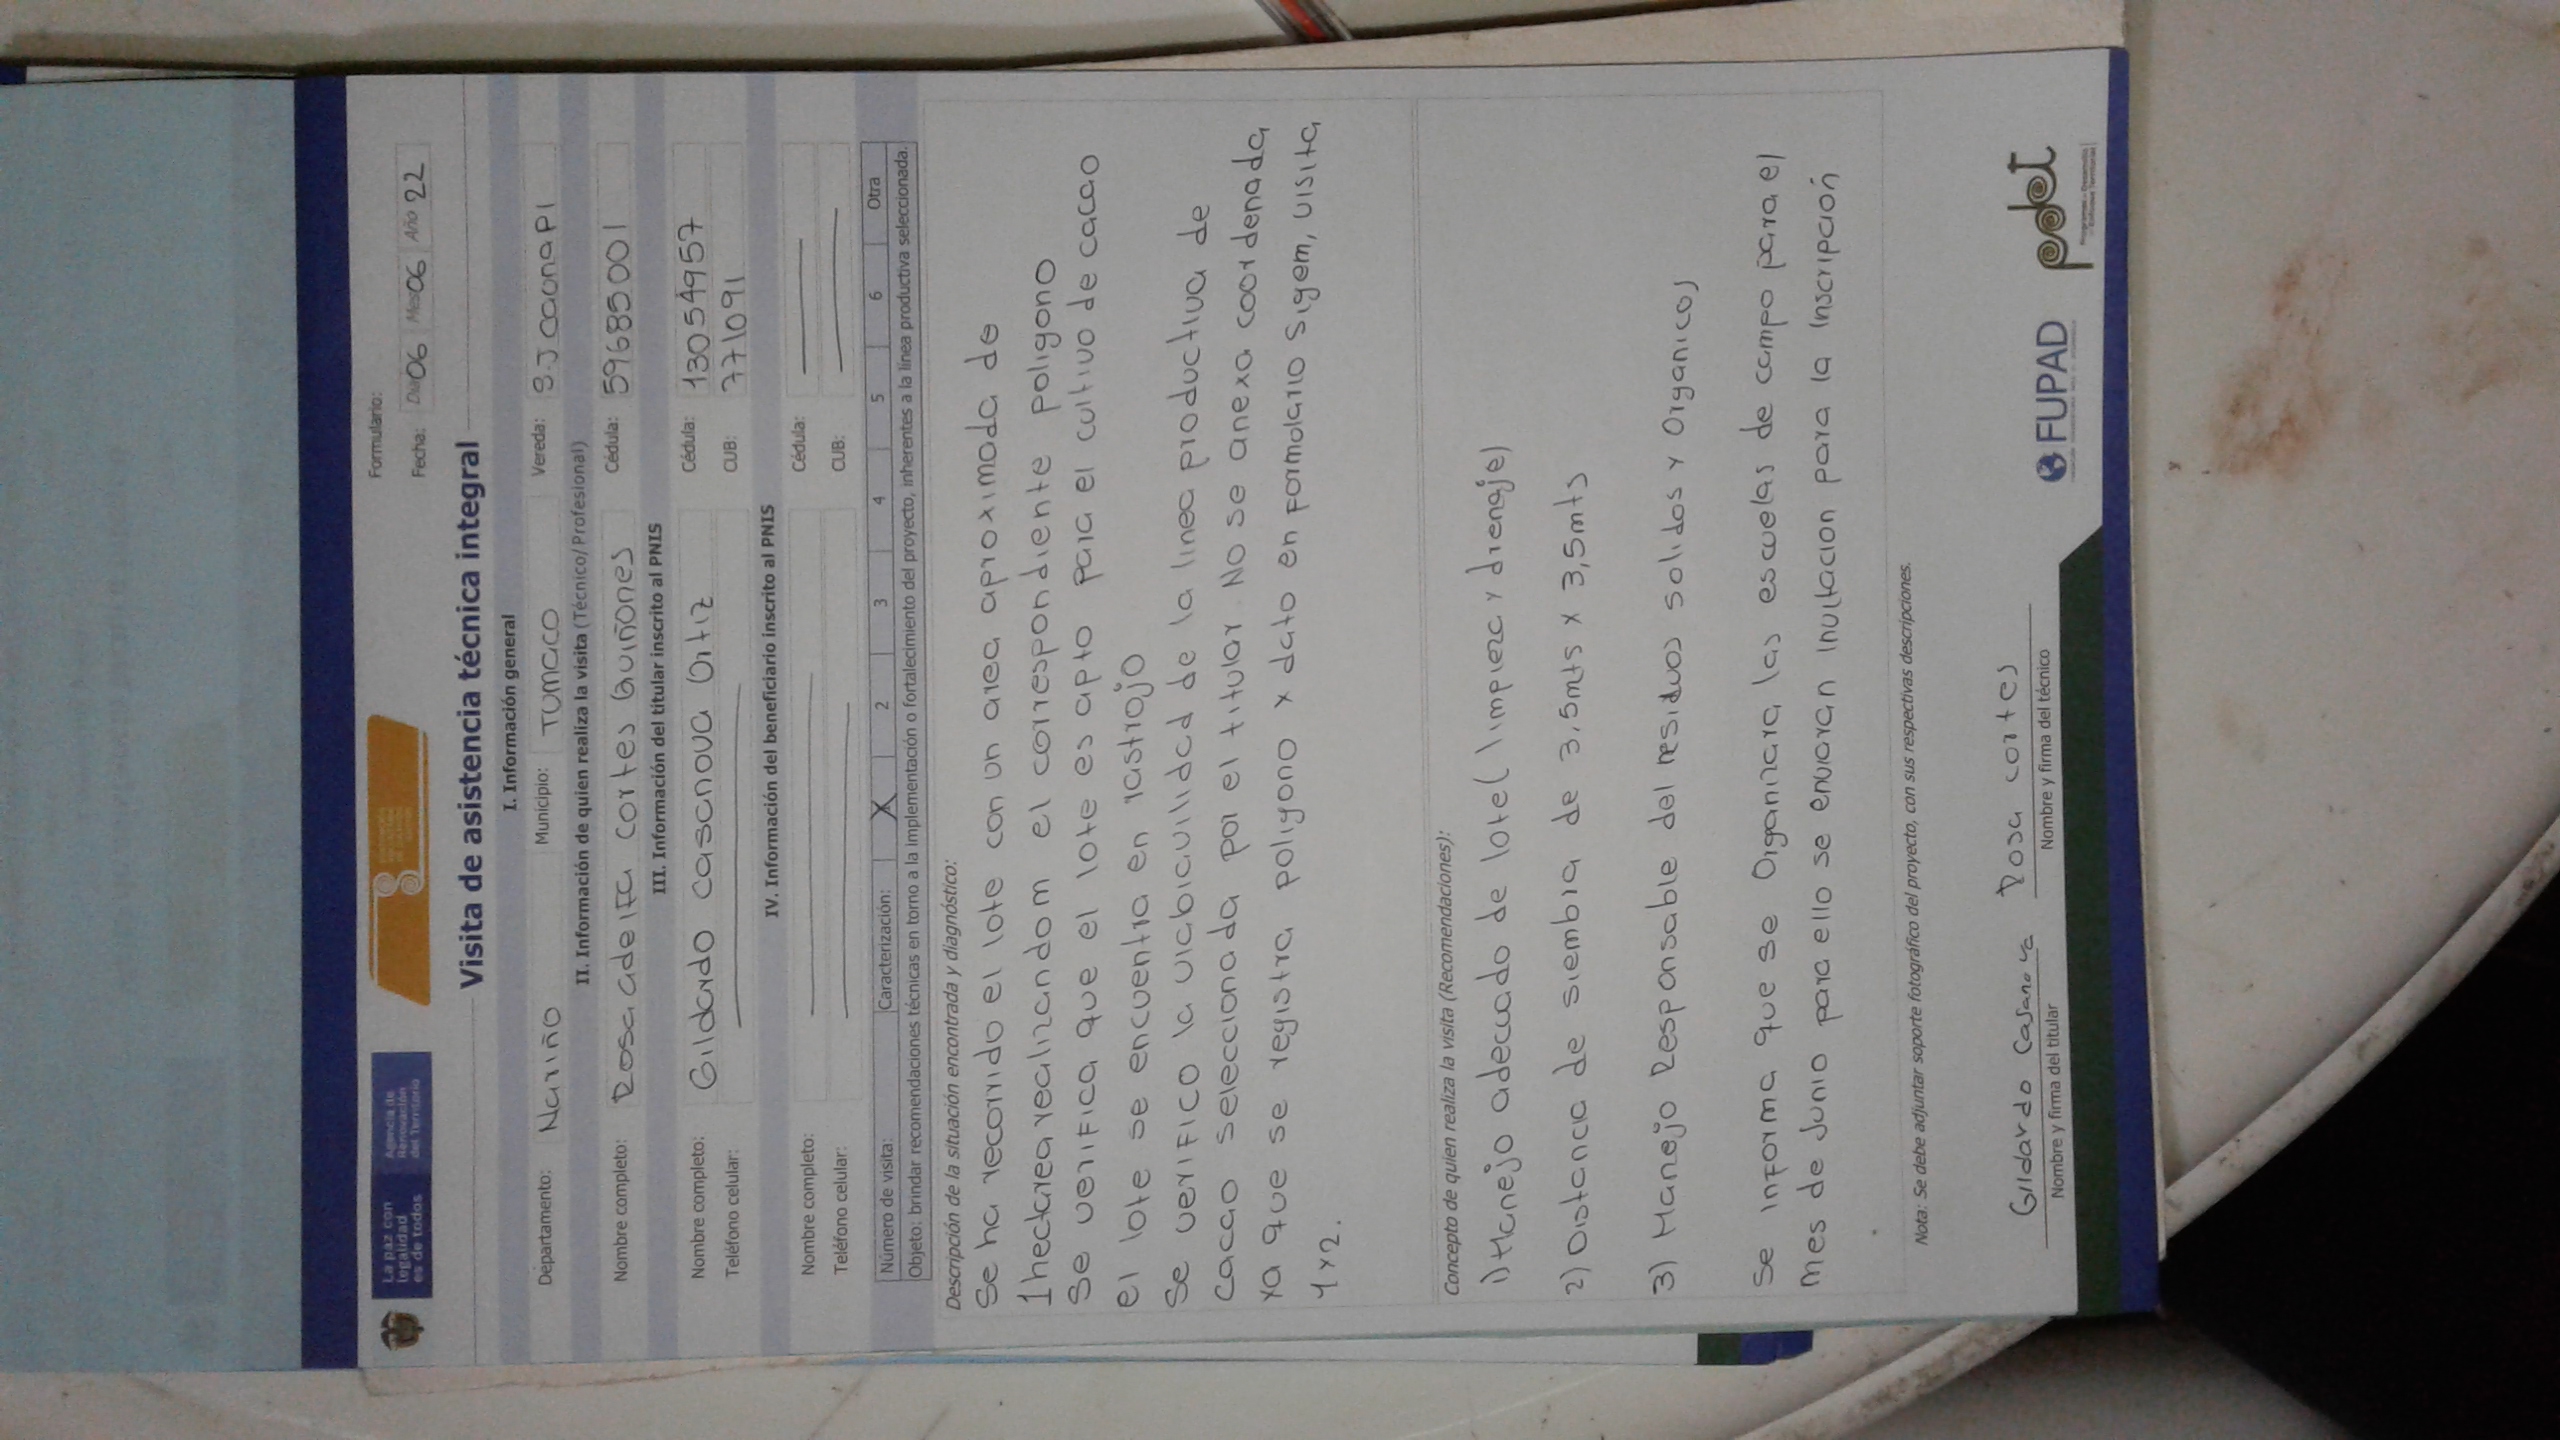 La paz con
legalidad
es de todos
Agencia de
Renovación
del Territorio
Formulario:
Fecha: Día 06 Mes 06 Año 22
Visita de asistencia técnica integral
I. Información general
Departamento: Nariño Municipio: TUMACO Vereda: S.J CaunapI
II. Información de quien realiza la visita (Técnico/Profesional)
Nombre completo: Rosa adelfa cortes Quiñones Cédula: 59685001
III. Información del titular inscrito al PNIS
Nombre completo: Gildardo casanova Ortiz Cédula: 13054957
Teléfono celular: CUB: 771091
IV. Información del beneficiario inscrito al PNIS
Nombre completo: Cédula:
Teléfono celular: CUB:
Número de visita: Caracterización: X 2 3 4 5 6 Otra
Objeto: brindar recomendaciones técnicas en torno a la implementación o fortalecimiento del proyecto, inherentes a la línea productiva seleccionada.
Descripción de la situación encontrada y diagnóstico:
Se ha recorrido el lote con un area aproximada de
1 hectarea realizandom el correspondiente poligono
Se verifica que el lote es apto para el cultivo de cacao
el lote se encuentra en rastrojo
Se verifico la viabiavilidad de la linea productiva de
cacao seleccionada por el titular. No se anexa coordenada
ya que se registra poligono y dato en formolario sigem, visita
1 y 2.
Concepto de quien realiza la visita (Recomendaciones):
1) Manejo adecuado de lote (limpieza y drenaje)
2) Distancia de siembra de 3,5mts x 3,5mts
3) Manejo Responsable del residuos solidos y Organicos
Se informa que se Organizara las escuelas de campo para el
mes de Junio para ello se enviaran invitacion para la inscripción
Nota: Se debe adjuntar soporte fotográfico del proyecto, con sus respectivas descripciones.
Gildardo Casanova
Nombre y firma del titular
Rosa cortes
Nombre y firma del técnico
FUPAD
pdet